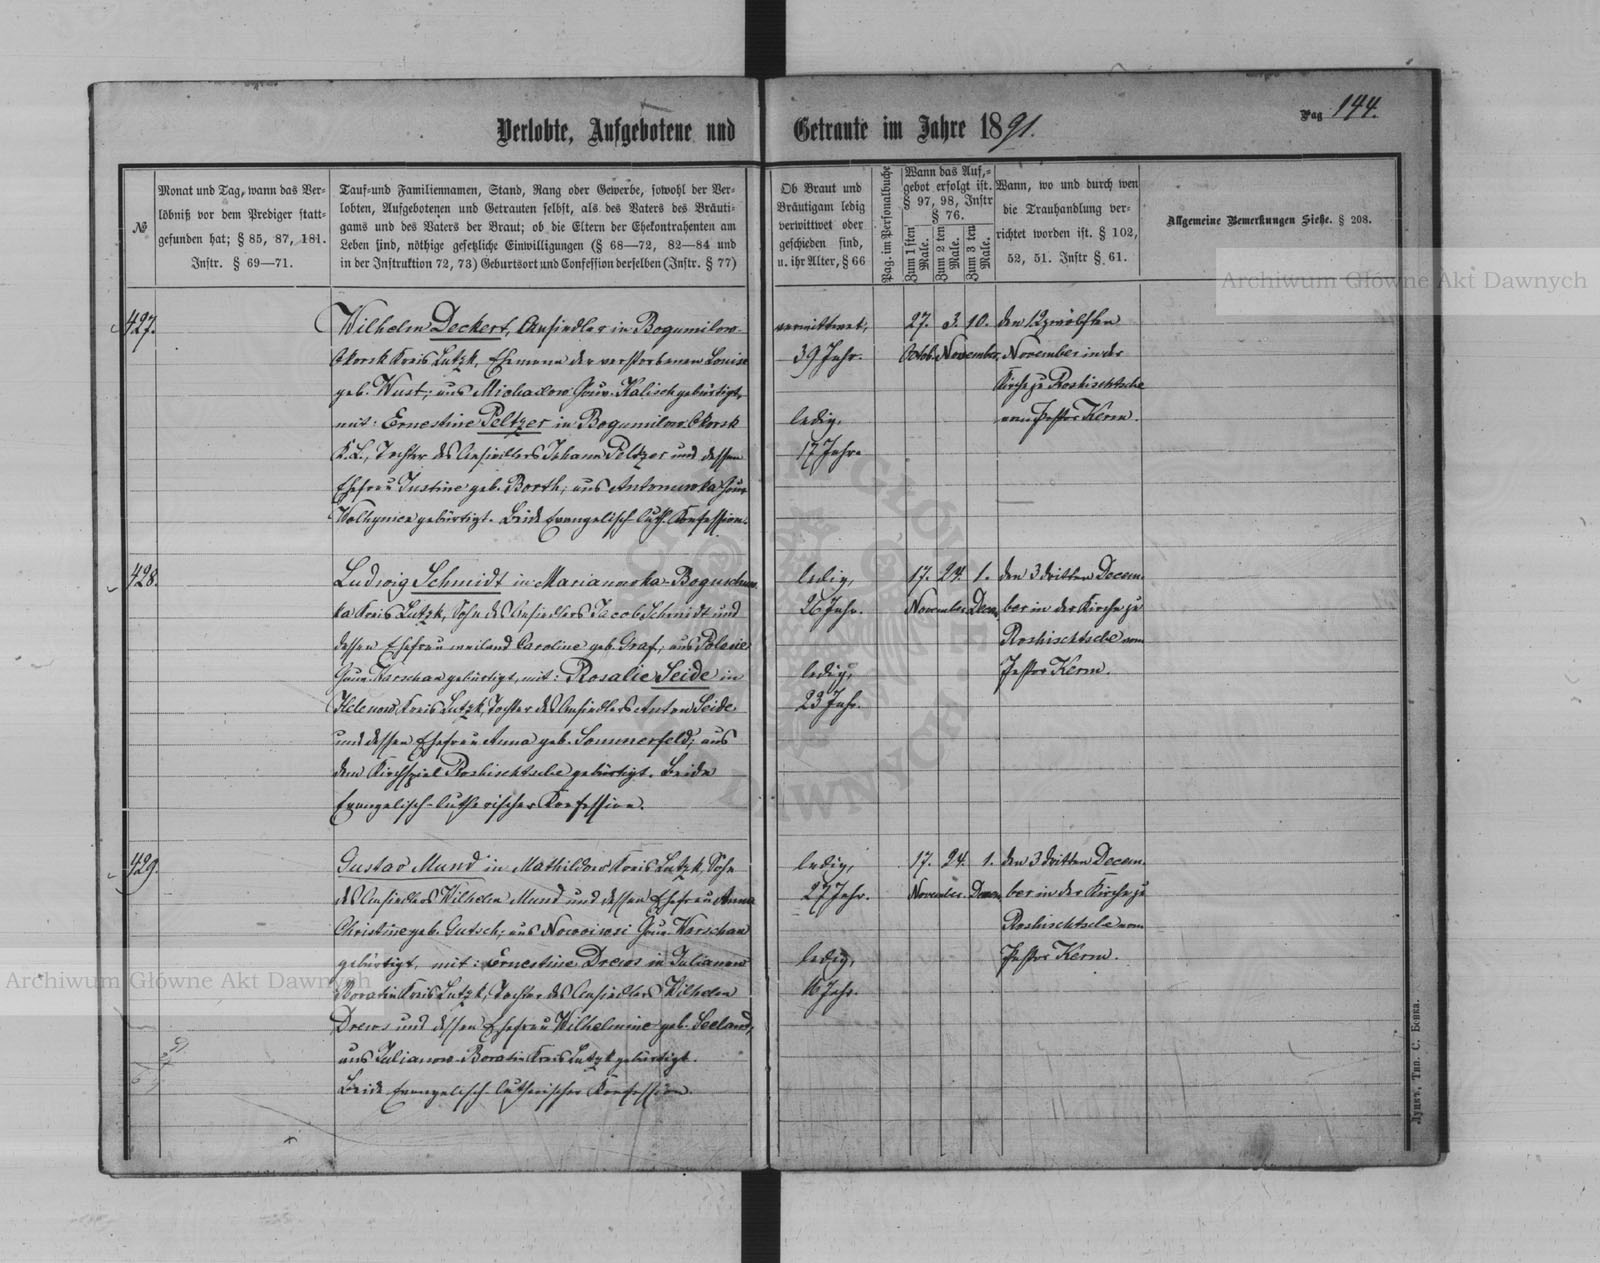 Verlobte, Aufgebotene und Getraute im Jahre 1891.
Pag 144.
№
Monat und Tag, wann das Ver-
löbniß vor dem Prediger statt-
gefunden hat; § 85, 87, 181.
Instr. § 69—71.
Tauf- und Familiennamen, Stand, Rang oder Gewerbe, sowohl der Ver-
lobten, Aufgebotenen und Getrauten selbst, als des Vaters des Bräuti-
gams und des Vaters der Braut; ob die Eltern der Ehekontrahenten am
Leben sind, nöthige gesetzliche Einwilligungen (§ 68—72, 82—84 und
in der Instruktion 72, 73) Geburtsort und Confession derselben (Instr. § 77)
Ob Braut und
Bräutigam ledig
verwittwet oder
geschieden sind,
u. ihr Alter, § 66
Pag. im Personalbuche
Wann das Auf,-
gebot erfolgt ist.
§ 97, 98, Instr
§ 76.
Zum 1 sten
Male.
Zum 2 ten
Male.
Zum 3 ten
Male.
Wann, wo und durch wen
die Trauhandlung ver-
richtet worden ist. § 102,
52, 51. Instr § 61.
Allgemeine Bemerkungen Siehe. § 208.
427.
Wilhelm Deckert, Ansiedler in Bogumilow-
Okorsk Kreis Lutzk, Ehemann der verstorbenen Louise
geb. Wust, aus Michailow Gouv. Kalisch gebürtigt,
mit: Ernestine Peltzer in Bogumilow-Okorsk
K.L., Tochter des Ansiedlers Johann Peltzer und dessen
Ehefrau Justine geb. Borth, aus Antonuwka Gouv.
Wolhynien gebürtigt. Beide Evangelisch-luth. Konfession.
verwittwet,
39 Jahr.
ledig,
17 Jahr.
27. 3. 10.
Octob. November.
den 12 zwölften
November in der
Kirche zu Roshischtsche
vom Pastor Kerm.
428.
Ludwig Schmidt in Marianowka-Boguschuw-
ka Kreis Lutzk, Sohn des Ansiedlers Jacob Schmidt und
dessen Ehefrau weiland Caroline geb. Graf, aus Polesie
Gouv. Warschau gebürtigt, mit: Rosalie Seide in
Helenow Kreis Lutzk, Tochter des Ansiedlers Anton Seide
und dessen Ehefrau Anna geb. Sommerfeld, aus
dem Kirchspiel Roshischtsche gebürtigt. Beide
Evangelisch-lutherischer Konfession.
ledig,
26 Jahr.
ledig,
23 Jahr.
17. 24. 1.
November. Decem.
den 3 dritten Decem-
ber in der Kirche zu
Roshischtsche vom
Pastor Kerm.
429.
Gustav Mund in Mathildow Kreis Lutzk, Sohn
des Ansiedlers Wilhelm Mund und dessen Ehefrau Anna
Christine geb. Gutsch, aus Nowoiwsi Gouv. Warschau
gebürtigt, mit: Ernestine Drews in Julianow
Boratin Kreis Lutzk, Tochter des Ansiedlers Wilhelm
Drews und dessen Ehefrau Wilhelmine geb. Seeland,
aus Julianow-Boratin Kreis Lutzk gebürtigt.
Beide Evangelisch-lutherischer Konfession.
ledig,
27 Jahr.
ledig,
16 Jahr.
17. 24. 1.
November. Decem.
den 3 dritten Decem-
ber in der Kirche zu
Roshischtsche vom
Pastor Kerm.
Луцкъ, Тип. С. Бонка.
Archiwum Główne Akt Dawnych
Archiwum Główne Akt Dawnych